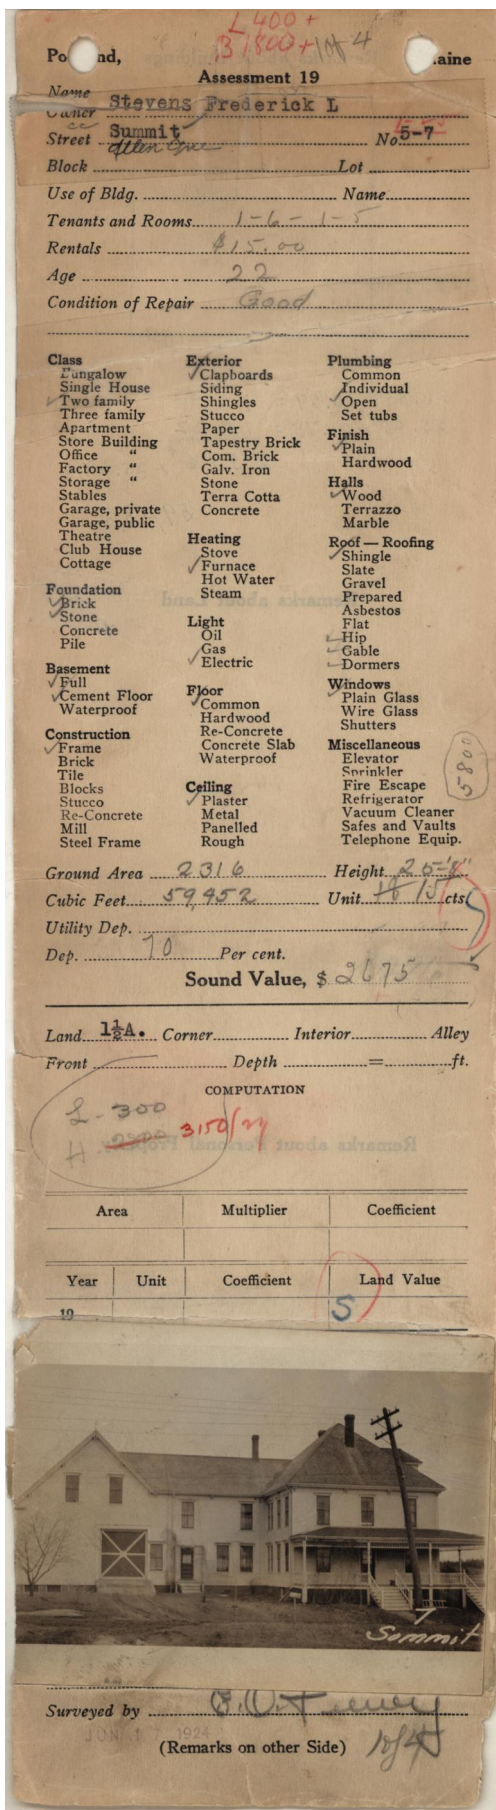 L 400 +
B 1800 + 1 of 4
Po nd, aine
Assessment 19
Name
Owner Stevens Frederick L
Street Summit No. 5-7
Block Lot
Use of Bldg. Name
Tenants and Rooms 1-6-1-5
Rentals $15.00
Age 22
Condition of Repair Good
Class
Bungalow
Single House
✓ Two family
Three family
Apartment
Store Building
Office "
Factory "
Storage "
Stables
Garage, private
Garage, public
Theatre
Club House
Cottage
Foundation
✓ Brick
✓ Stone
Concrete
Pile
Basement
✓ Full
✓ Cement Floor
Waterproof
Construction
✓ Frame
Brick
Tile
Blocks
Stucco
Re-Concrete
Mill
Steel Frame
Exterior
✓ Clapboards
Siding
Shingles
Stucco
Paper
Tapestry Brick
Com. Brick
Galv. Iron
Stone
Terra Cotta
Concrete
Heating
Stove
✓ Furnace
Hot Water
Steam
Light
Oil
Gas
✓ Electric
Floor
✓ Common
Hardwood
Re-Concrete
Concrete Slab
Waterproof
Ceiling
✓ Plaster
Metal
Panelled
Rough
Plumbing
Common
Individual
✓ Open
Set tubs
Finish
✓ Plain
Hardwood
Halls
✓ Wood
Terrazzo
Marble
Roof — Roofing
✓ Shingle
Slate
Gravel
Prepared
Asbestos
Flat
✓ Hip
✓ Gable
✓ Dormers
Windows
✓ Plain Glass
Wire Glass
Shutters
Miscellaneous
Elevator
Sprinkler
Fire Escape
Refrigerator
Vacuum Cleaner
Safes and Vaults
Telephone Equip.
5800
Ground Area 2316 Height
Cubic Feet 59,452 Unit 15 cts
Utility Dep.
Dep. 70 Per cent.
Sound Value, $ 2675
Land 1½A. Corner Interior Alley
Front Depth = ft.
COMPUTATION
L - 300
H 3150/
Area Multiplier Coefficient
Year Unit Coefficient Land Value
19 S
7
Summit
Surveyed by
JUN 17 1924
(Remarks on other Side) 1 of 4